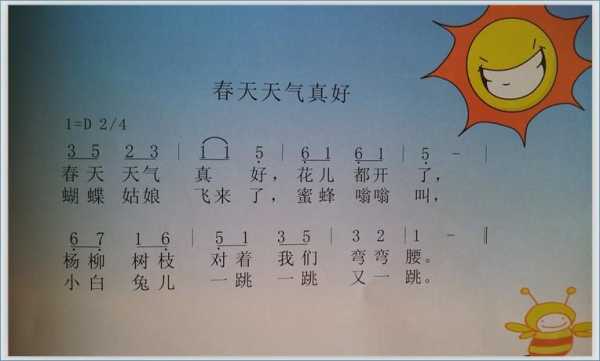 春天天气真好
1=D 2/4
3 5 2 3 | 1 1 5 | 6 1 6 1 | 5 - |
春天 天气 真 好，花儿 都开 了，
蝴蝶 姑娘 飞来 了，蜜蜂 嗡嗡 叫，
6 7 1 6 | 5 1 3 5 | 3 2 | 1 - ‖
杨柳 树枝 对着 我们 弯弯 腰。
小白 兔儿 一跳 一跳 又一 跳。